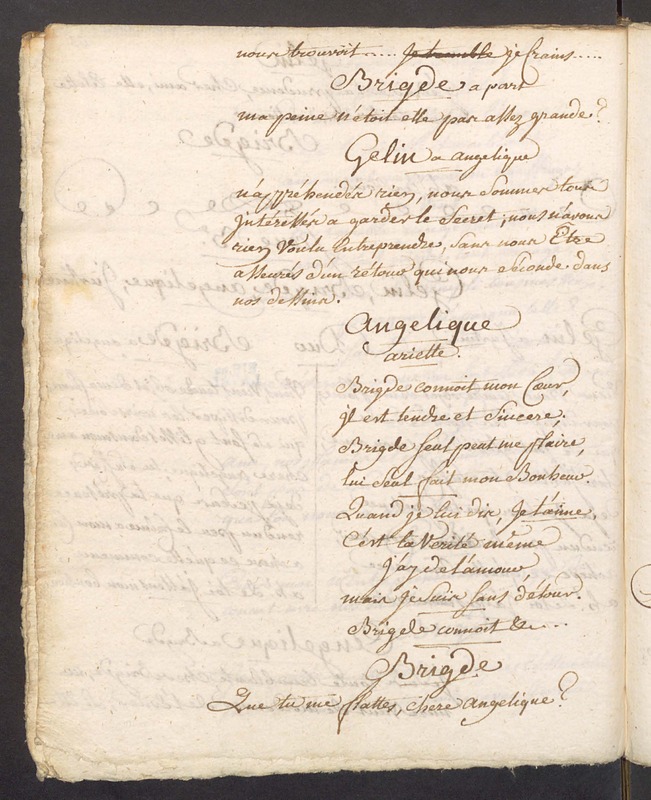 nous trouvoit .... Je tremble je crains ....
Brigde a part
ma peine n'étoit elle pas assez grande?
Gelin a angelique
n'appréhendés rien, nous sommes tous
jntéressés a garder le secret; nous n'avons
rien voulu Entreprendre, sans nous Etre
assurés d'un retour qui nous seconde dans
nos desseins.
Angelique
ariette.
Brigde connoit mon Cœur,
jl est tendre et sincere,
Brigde seul peut me plaire,
lui seul fait mon Bonheur
Quand je lui dis, Je t'aime,
C'est la Verité même
j'ay de l'amour
mais je suis sans détour.
Brigde connoit &c ...
Brigde
Que tu me flattes, chere angelique?